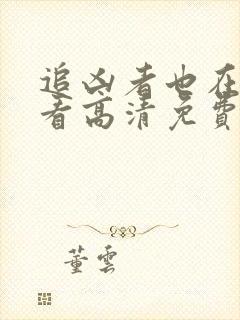 追凶者也在
看高清免費
董雲